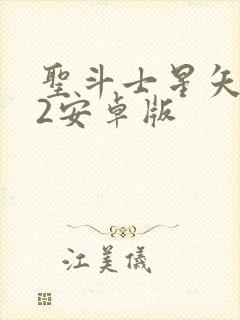 聖斗士星矢
2安卓版
江美儀